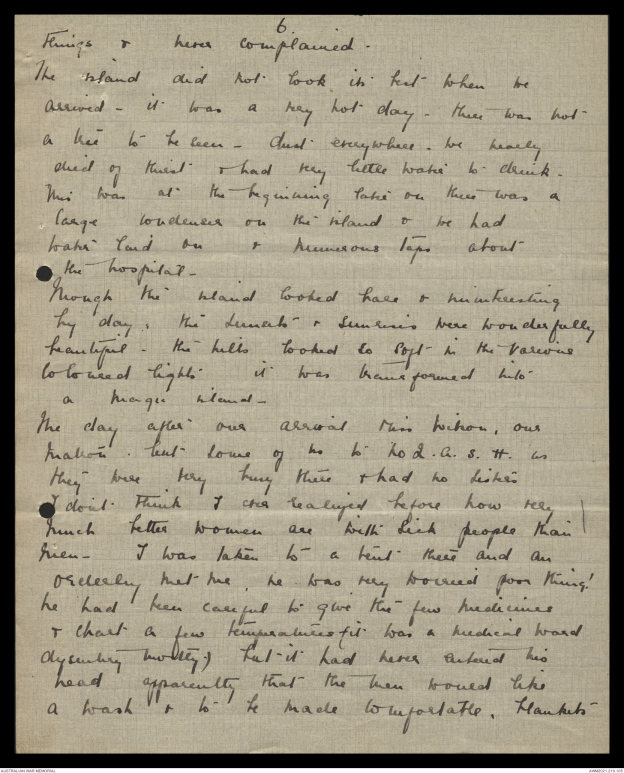 6.
things & never complained.
The island did not look its best when we
arrived - it was a very hot day - there was not
a tree to be seen - dust everywhere. we nearly
died of thirst & had very little water to drink.
This was at the beginning later on there was a
large condenser on the island & we had
water laid on & numerous taps about
the hospital -
Though the island looked bare & uninteresting
by day, the sunsets & sunrises were wonderfully
beautiful - the hills looked so soft in the various
coloured lights it was transformed into
a magic island -
The day after our arrival Miss Wilson, our
matron. sent some of us to No 2. A. S. H. as
they were very busy there & had no sisters
I don't think I ever realized before how very
much better women are with sick people than
men - I was taken to a tent there and an
orderly met me, he was very worried poor thing!
he had been careful to give the few medicines
& chart a few temperatures (it was a medical ward
dysentery mostly) but it had never entered his
head apparently that the men would like
a wash & to be made comfortable. blankets
AUSTRALIAN WAR MEMORIAL